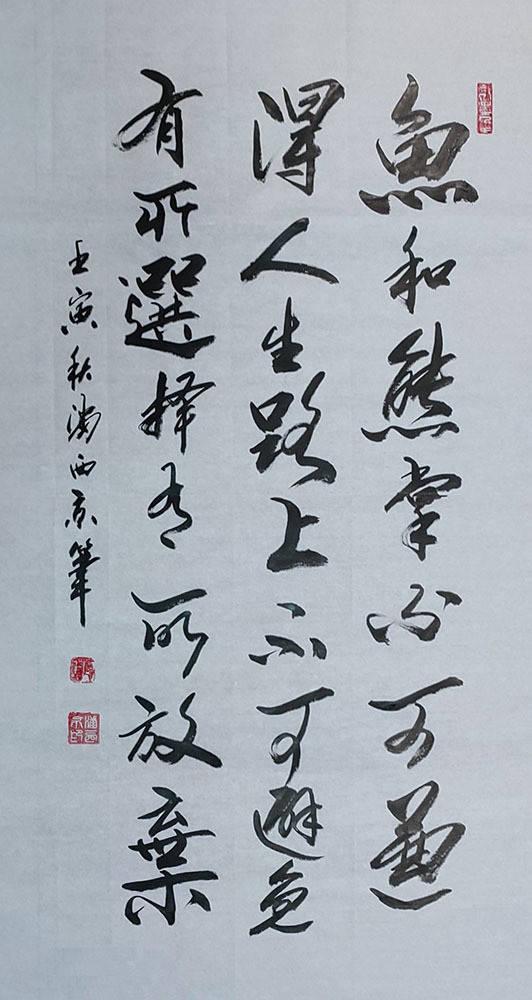 魚和熊掌不可兼
得人生路上不可避免
有所選择有所放棄
壬寅秋潘西京筆